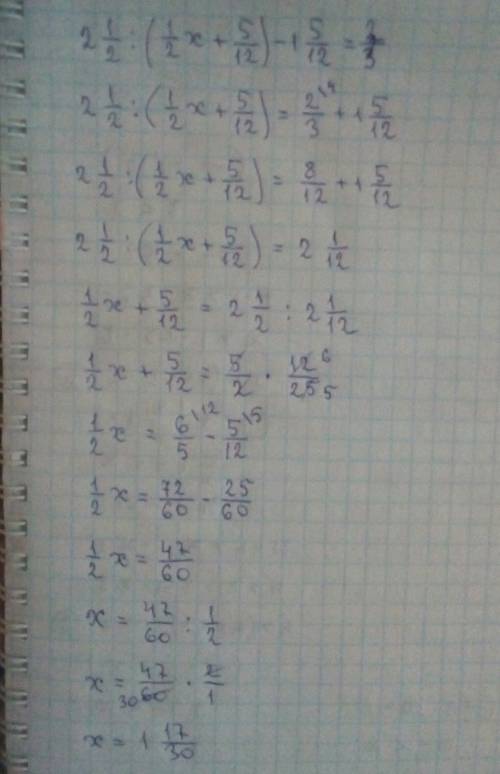 2 1/2 : (1/2 x + 5/12) - 1 5/12 = 2/3
2 1/2 : (1/2 x + 5/12) = 2/3 \4 + 1 5/12
2 1/2 : (1/2 x + 5/12) = 8/12 + 1 5/12
2 1/2 : (1/2 x + 5/12) = 2 1/12
1/2 x + 5/12 = 2 1/2 : 2 1/12
1/2 x + 5/12 = 5/2 · 12 6/25 5
1/2 x = 6/5 \12 - 5/12 \5
1/2 x = 72/60 - 25/60
1/2 x = 47/60
x = 47/60 : 1/2
x = 47/30 60 · 2/1
x = 1 17/30